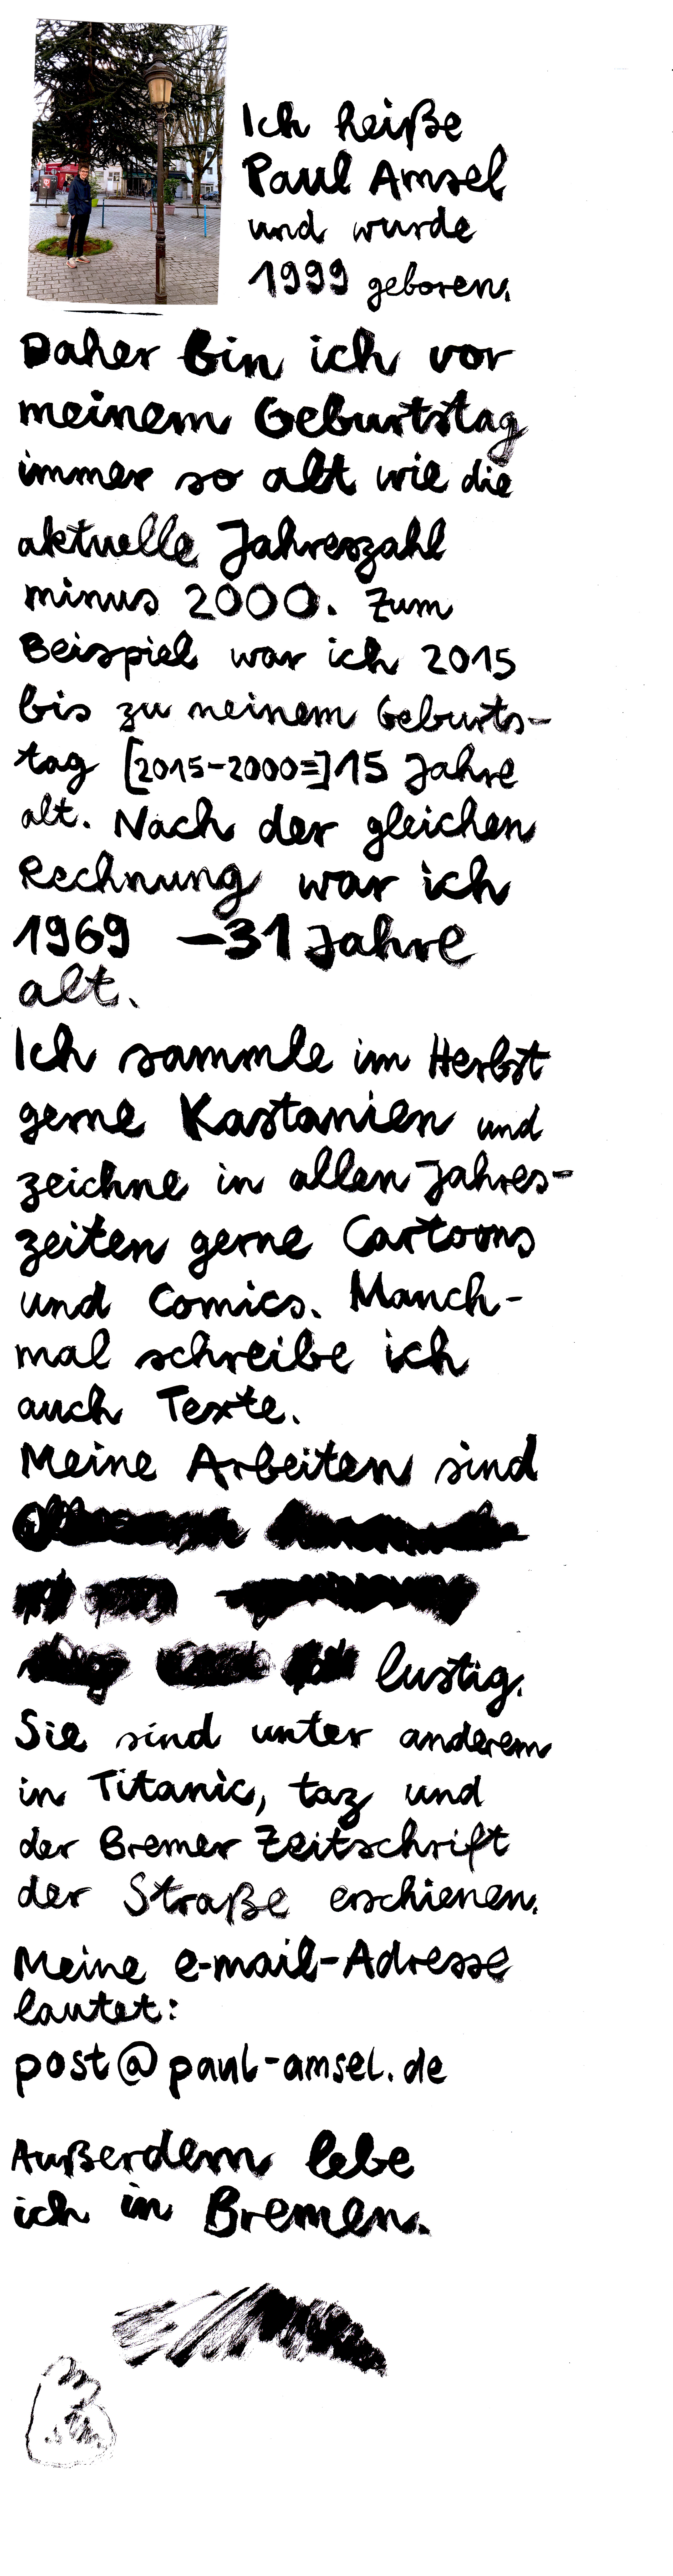 Ich heiße
Paul Amsel
und wurde
1999 geboren.
Daher bin ich vor
meinem Geburtstag
immer so alt wie die
aktuelle Jahreszahl
minus 2000. Zum
Beispiel war ich 2015
bis zu meinem Geburts-
tag [2015-2000=]15 Jahre
alt. Nach der gleichen
Rechnung war ich
1969 -31 Jahre
alt.
Ich sammle im Herbst
gerne Kastanien und
zeichne in allen Jahres-
zeiten gerne Cartoons
und Comics. Manch-
mal schreibe ich
auch Texte.
Meine Arbeiten sind
lustig.
Sie sind unter anderem
in Titanic, taz und
der Bremer Zeitschrift
der Straße erschienen.
Meine e-mail-Adresse
lautet:
post@paul-amsel.de
Außerdem lebe
ich in Bremen.